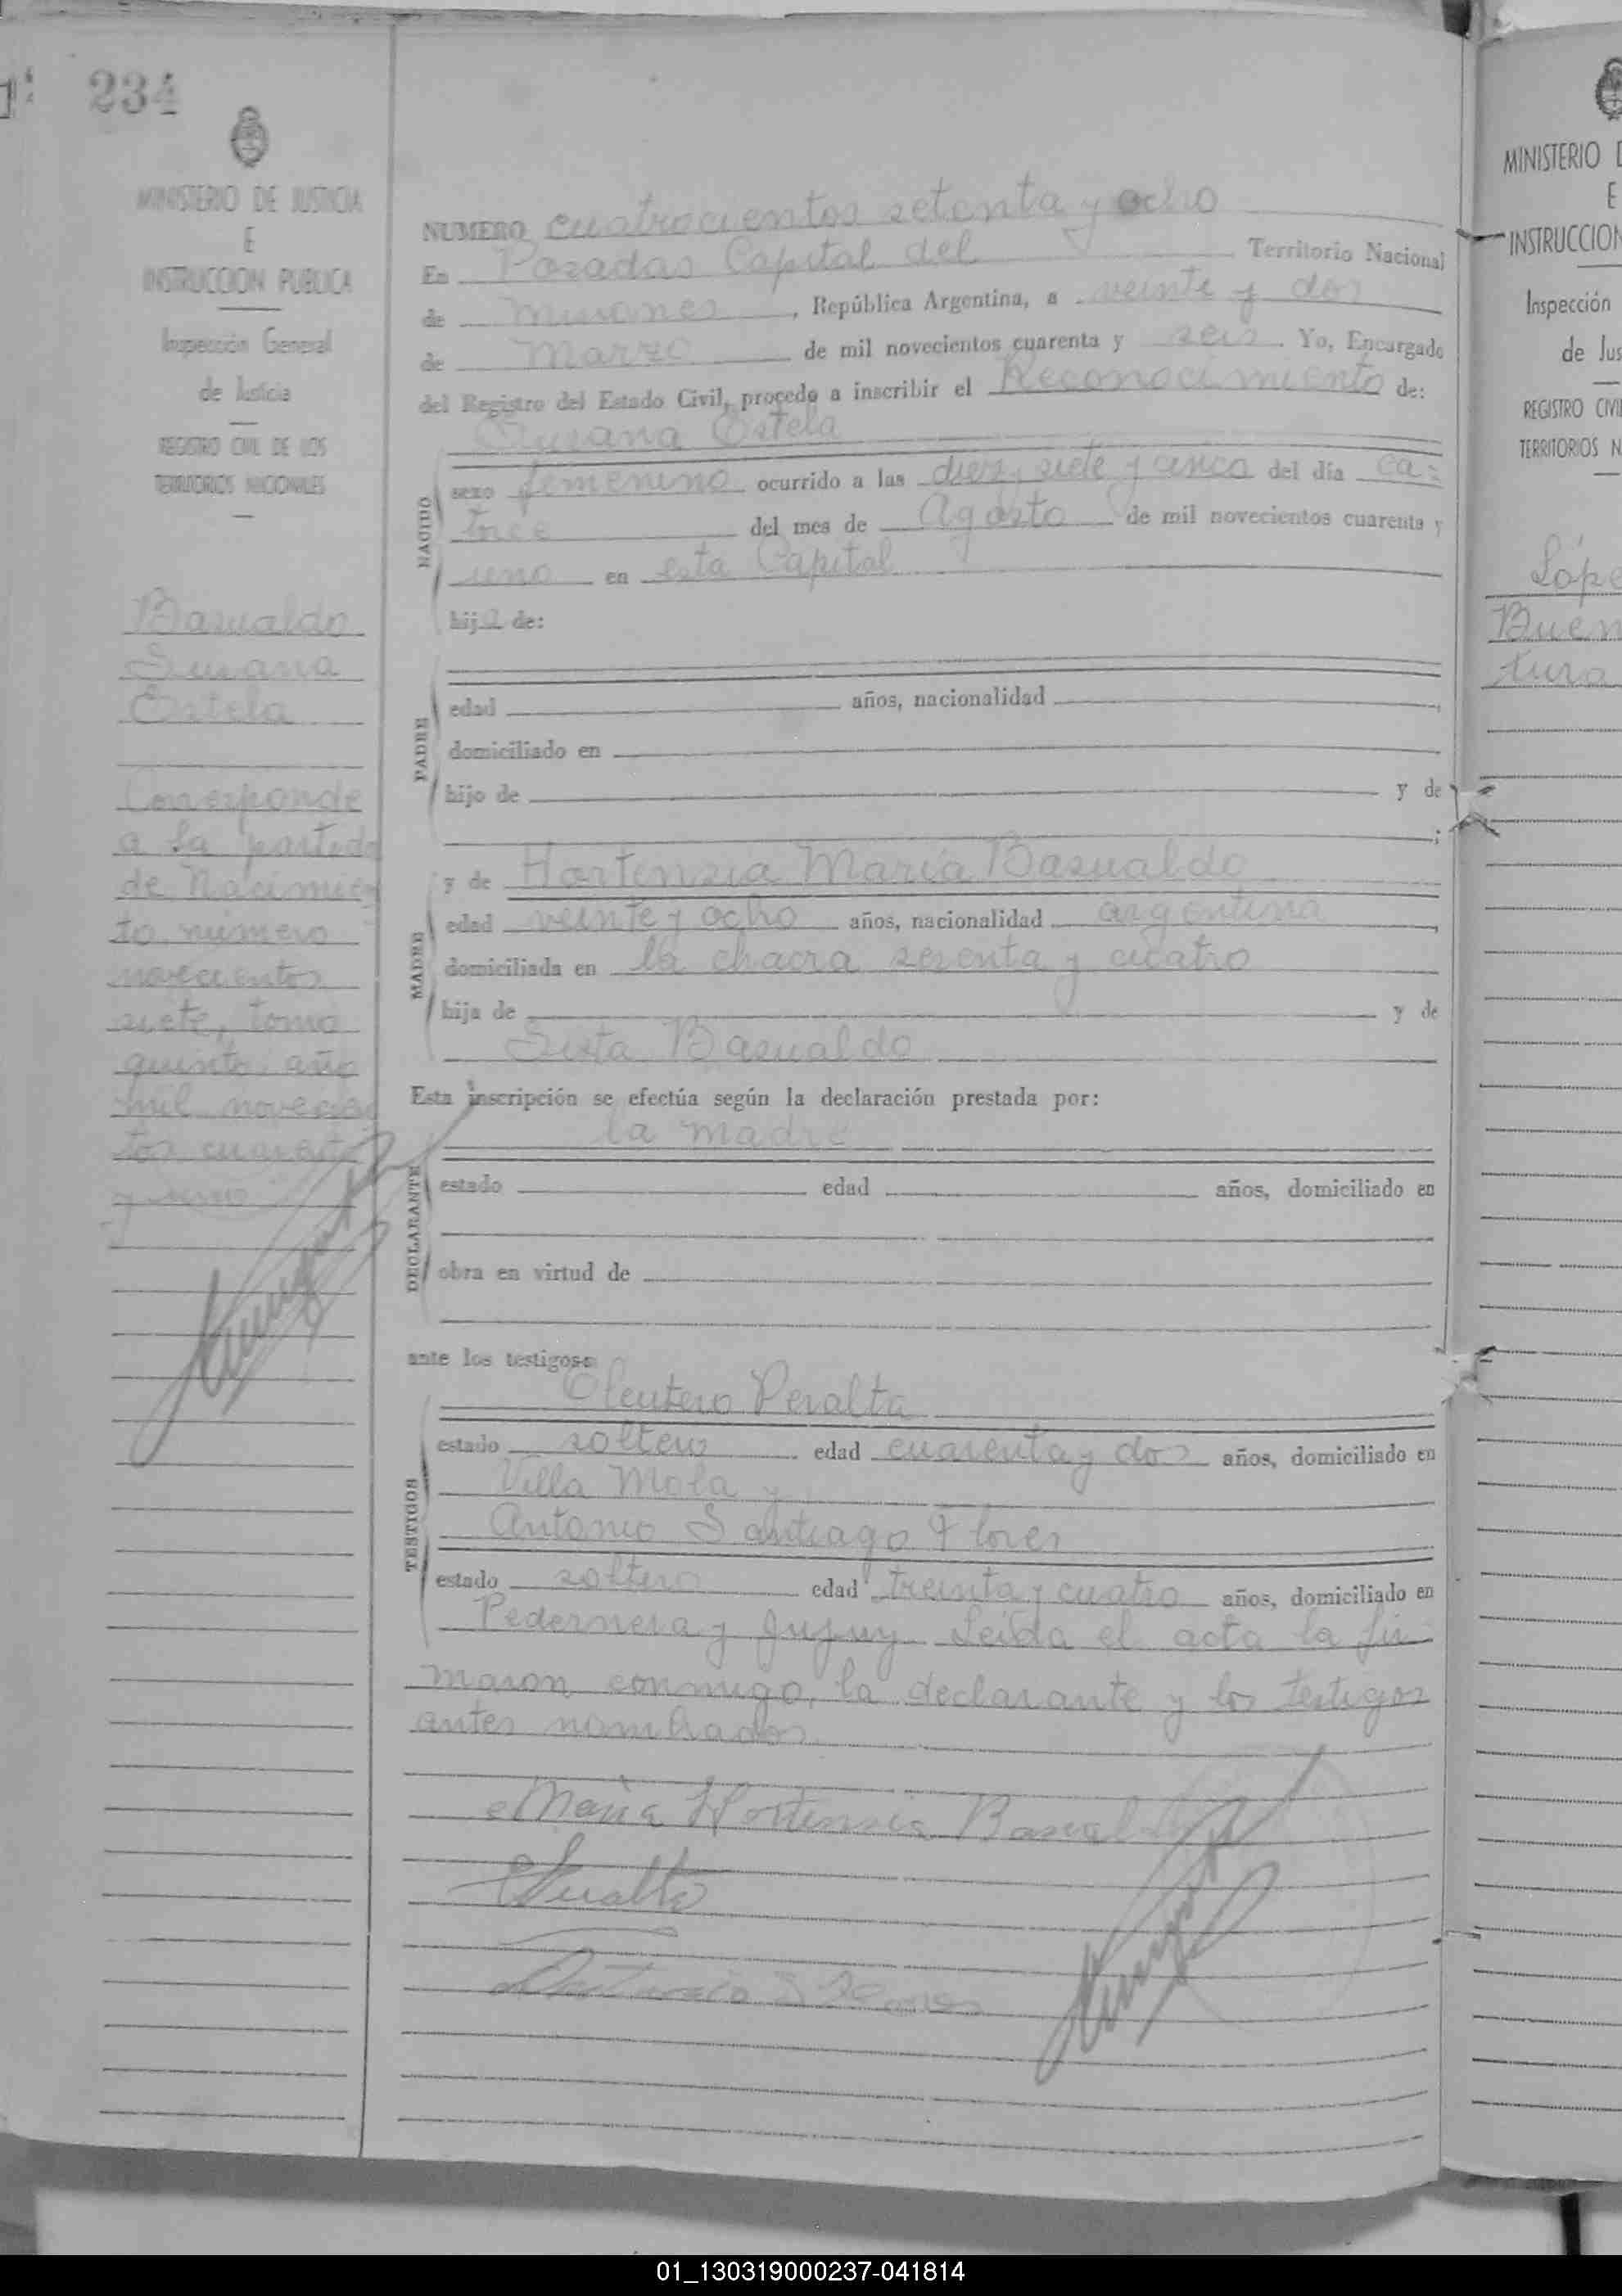 234
MINISTERIO DE JUSTICIA
E
INSTRUCCION PUBLICA
Inspección General
de Justicia
REGISTRO CIVIL DE LOS
TERRITORIOS NACIONALES
Basualdo
Susana
Estela
Corresponde
a la partida
de Nacimien
to número
novecientos
siete, tomo
quinto año
mil novecien
tos cuarenta
y uno
NUMERO cuatrocientos setenta y ocho
En Posadas Capital del Territorio Nacional
de Misiones, República Argentina, a veinte y dos
de Marzo de mil novecientos cuarenta y seis. Yo, Encargado
del Registro del Estado Civil, procedo a inscribir el Reconocimiento de:
Susana Estela
NACIDO
sexo femenino ocurrido a las diez y siete y cinco del día ca=
torce del mes de Agosto de mil novecientos cuarenta y
uno en esta Capital
hija de:
PADRE
edad años, nacionalidad ,
domiciliado en
hijo de y de
;
y de Hortensia María Basualdo
MADRE
edad veinte y ocho años, nacionalidad argentina,
domiciliada en la chacra sesenta y cuatro
hija de y de
Sixta Basualdo
Esta inscripción se efectúa según la declaración prestada por:
la madre
DECLARANTE
estado edad años, domiciliado en
obra en virtud de
ante los testigos:
Eleutero Peralta
TESTIGOS
estado soltero edad cuarenta y dos años, domiciliado en
Villa Mola y
Antonio Santiago Flores
estado soltero edad treinta y cuatro años, domiciliado en
Pedernera y Jujuy Leída el acta la fir
maron conmigo, la declarante y los testigos
antes nombrados.
María Hortensia Basual
EPeralta
Antonio S Flores
MINISTERIO D
E
INSTRUCCION
Inspección
de Jus
REGISTRO CIVI
TERRITORIOS N
Lópe
Buen
tura
01_130319000237-041814